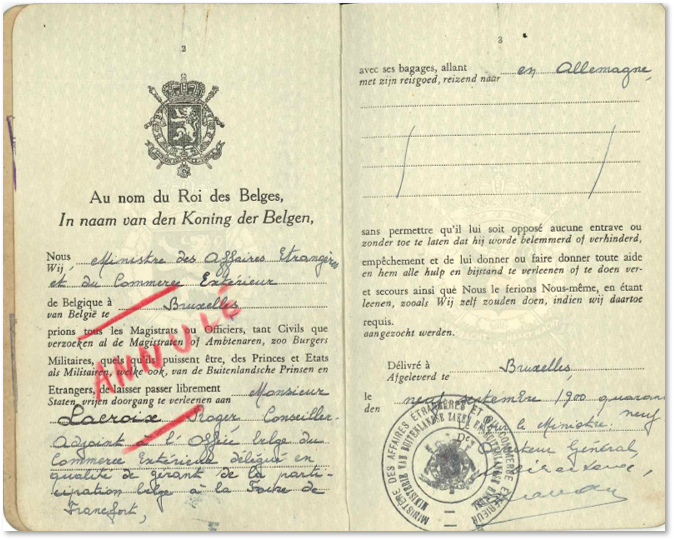 2
Au nom du Roi des Belges,
In naam van den Koning der Belgen,
Nous Ministre des Affaires Etrangères
Wij,
et du Commerce Extérieur
de Belgique à Bruxelles
van België te
ANNULÉ
prions tous les Magistrats ou Officiers, tant Civils que
verzoeken al de Magistraten of Ambtenaren, zoo Burgers
Militaires, quels qu'ils puissent être, des Princes et Etats
als Militairen, welke ook, van de Buitenlandsche Prinsen en
Etrangers, de laisser passer librement Monsieur
Staten, vrijen doorgang te verleenen aan
Lacroix Roger, Conseiller-
Adjoint à l'Office belge du
Commerce Extérieur délégué en
qualité de gérant de la parti-
cipation belge à la Foire de
Francfort,
3
avec ses bagages, allant en Allemagne,
met zijn reisgoed, reizend naar
sans permettre qu'il lui soit opposé aucune entrave ou
zonder toe te laten dat hij worde belemmerd of verhinderd,
empêchement et de lui donner ou faire donner toute aide
en hem alle hulp en bijstand te verleenen of te doen ver-
et secours ainsi que Nous le ferions Nous-même, en étant
leenen, zooals Wij zelf zouden doen, indien wij daartoe
requis.
aangezocht werden.
Délivré à Bruxelles,
Afgeleverd te
le neuf septembre 1900 quarante
den
neuf
le Ministre.
Directeur Général,
MINISTÈRE DES AFFAIRES ETRANGÈRES ET DU COMMERCE EXTÉRIEUR
MINISTERIE VAN BUITENLANDSE ZAKEN